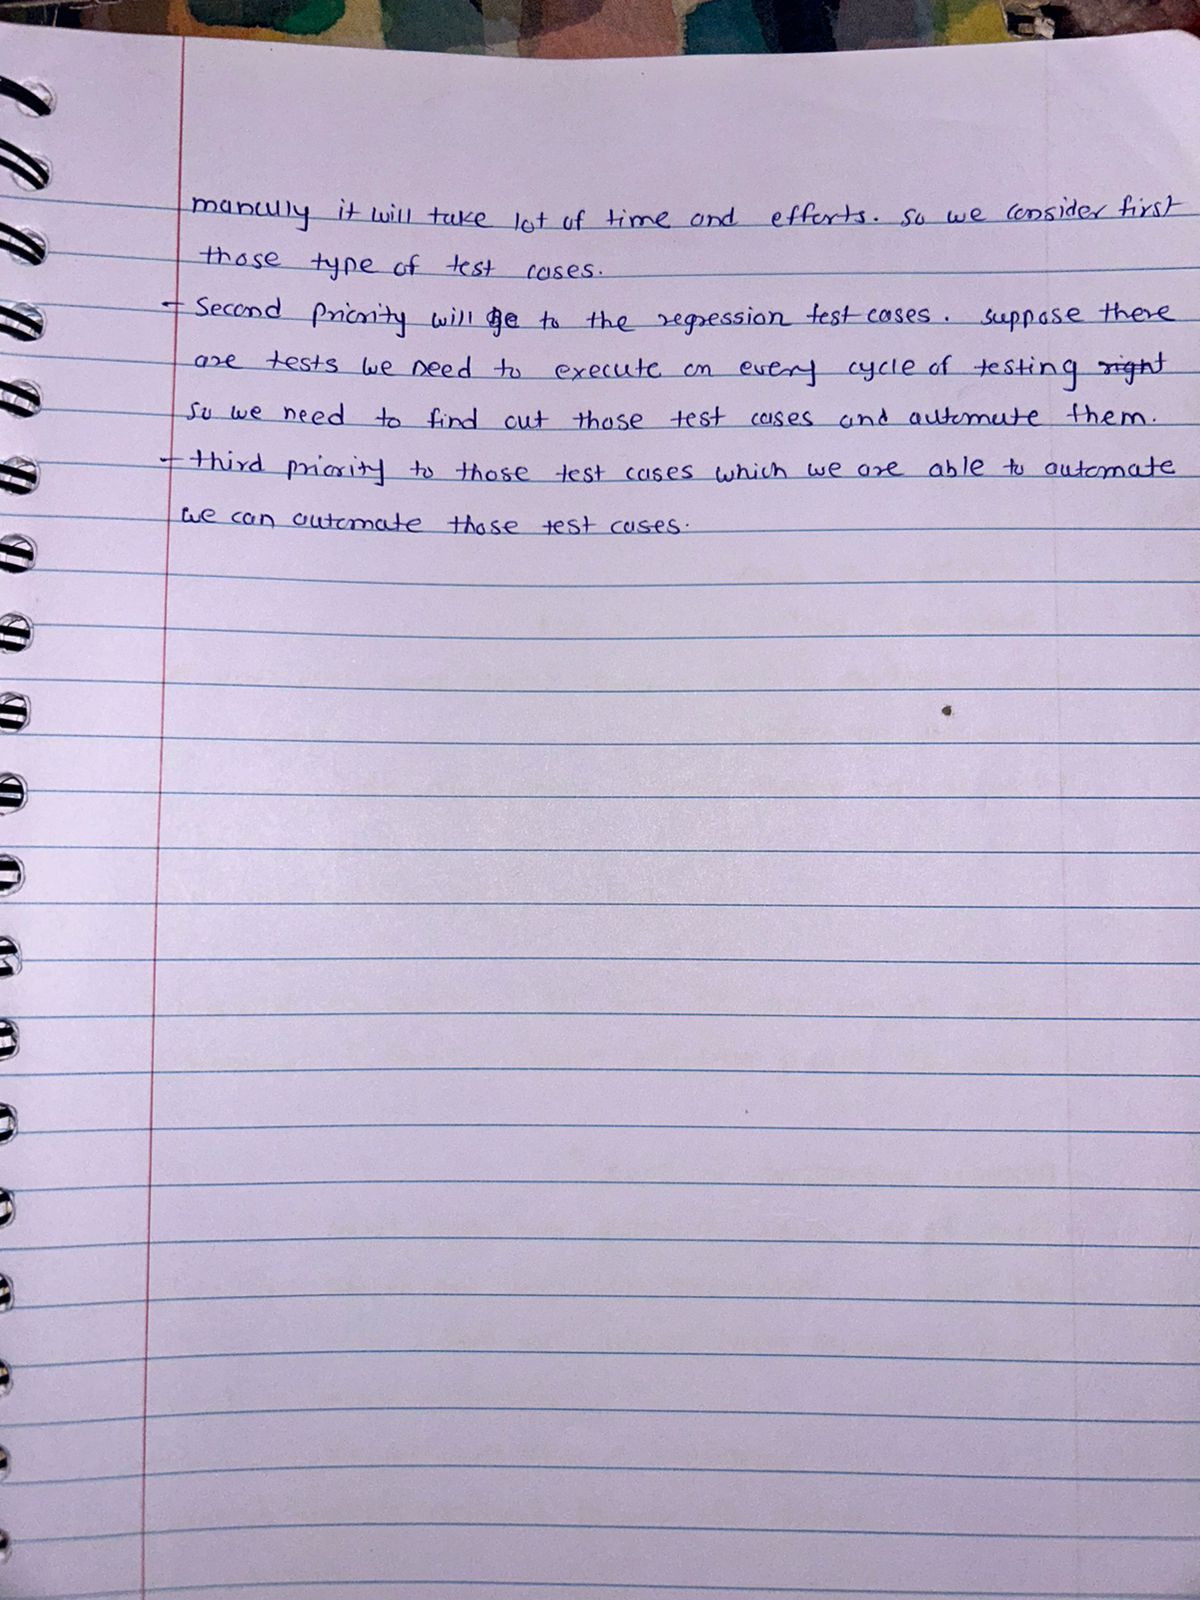 manully it will take lot of time and efforts. so we consider first
those type of test cases.
- Second priority will be to the regression test cases. suppose there
are tests we need to execute on every cycle of testing right
so we need to find out those test cases and automate them.
- third priority to those test cases which we are able to automate
we can automate those test cases.